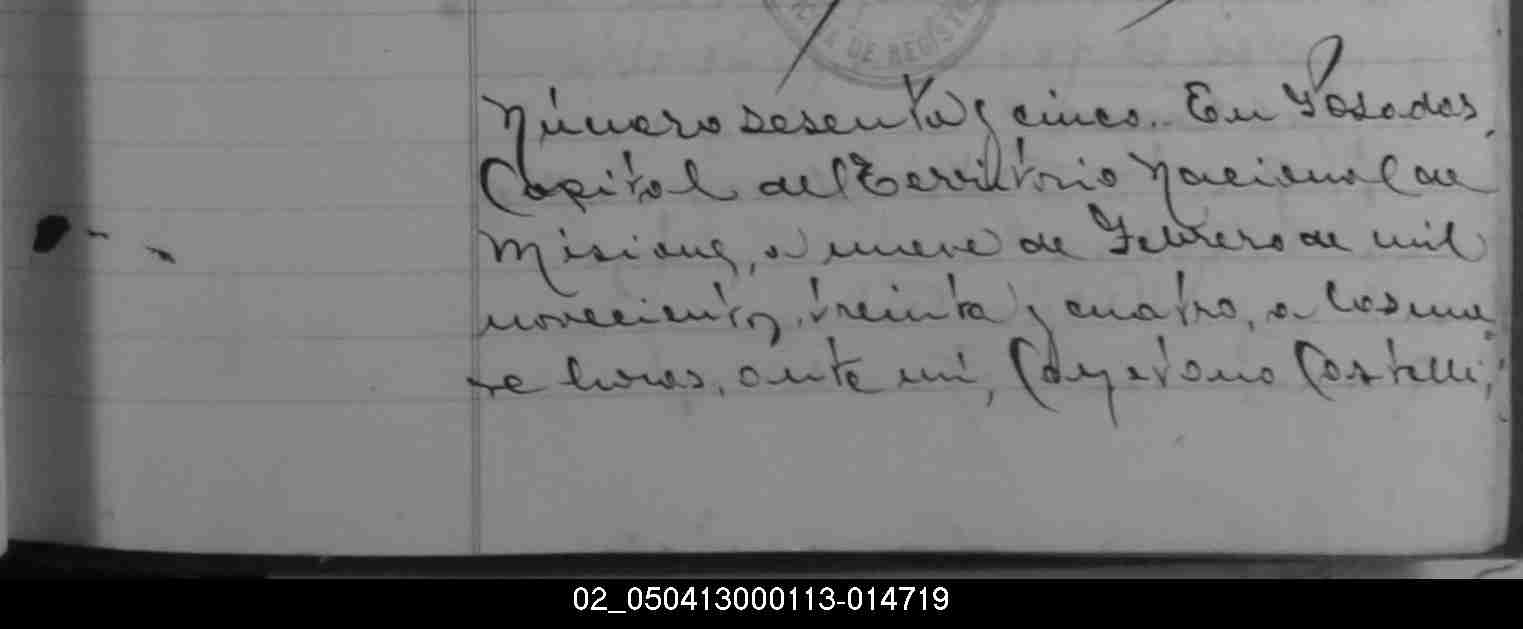 DE REGIST
Número sesenta y cinco. En Posadas,
Capital del Territorio Nacional de
Misiones, a nueve de Febrero de mil
novecientos treinta y cuatro, a las nue
ve horas, ante mi, Cayetano Castelli,
02_050413000113-014719